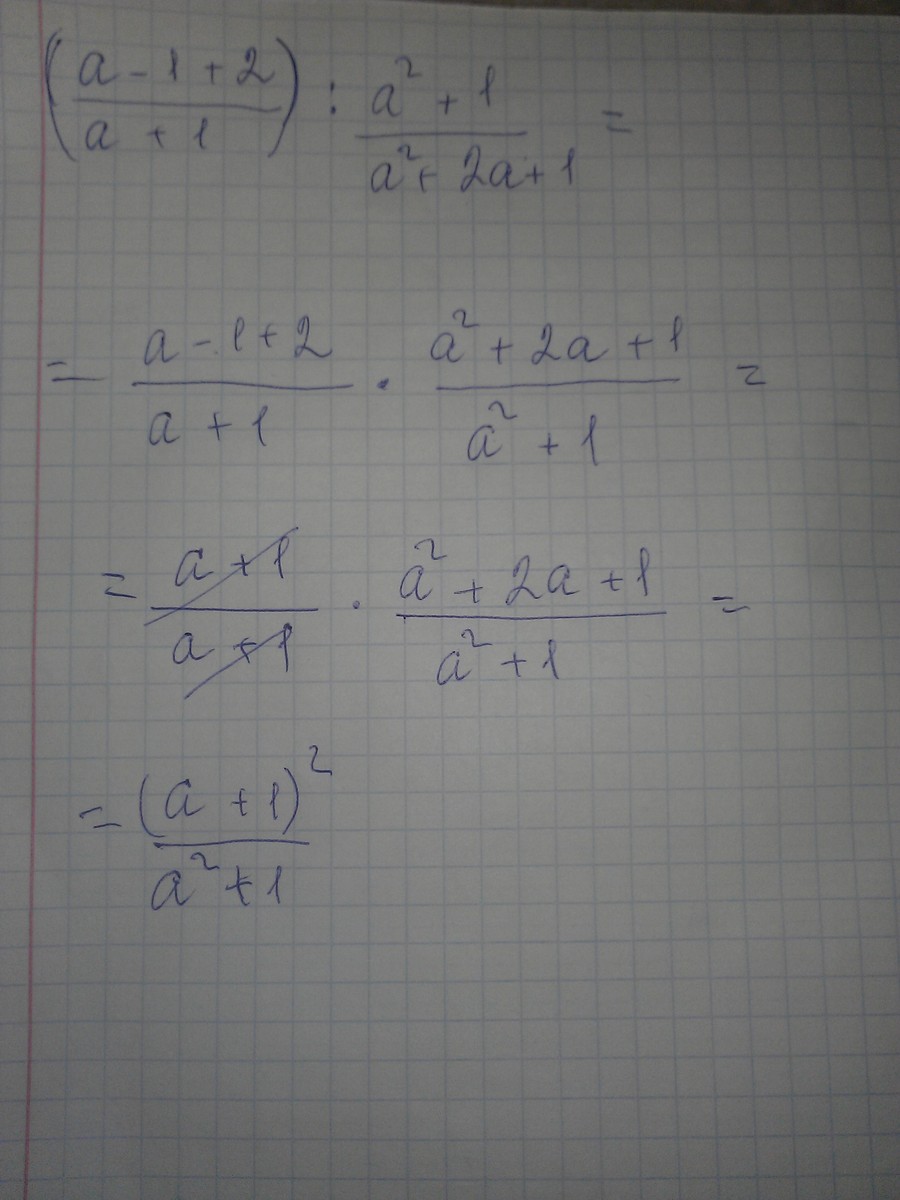 (a - 1 + 2 / a + 1) : a² + 1 / a² + 2a + 1 =
= a - 1 + 2 / a + 1 · a² + 2a + 1 / a² + 1 =
= a + 1 / a + 1 · a² + 2a + 1 / a² + 1 =
= (a + 1)² / a² + 1